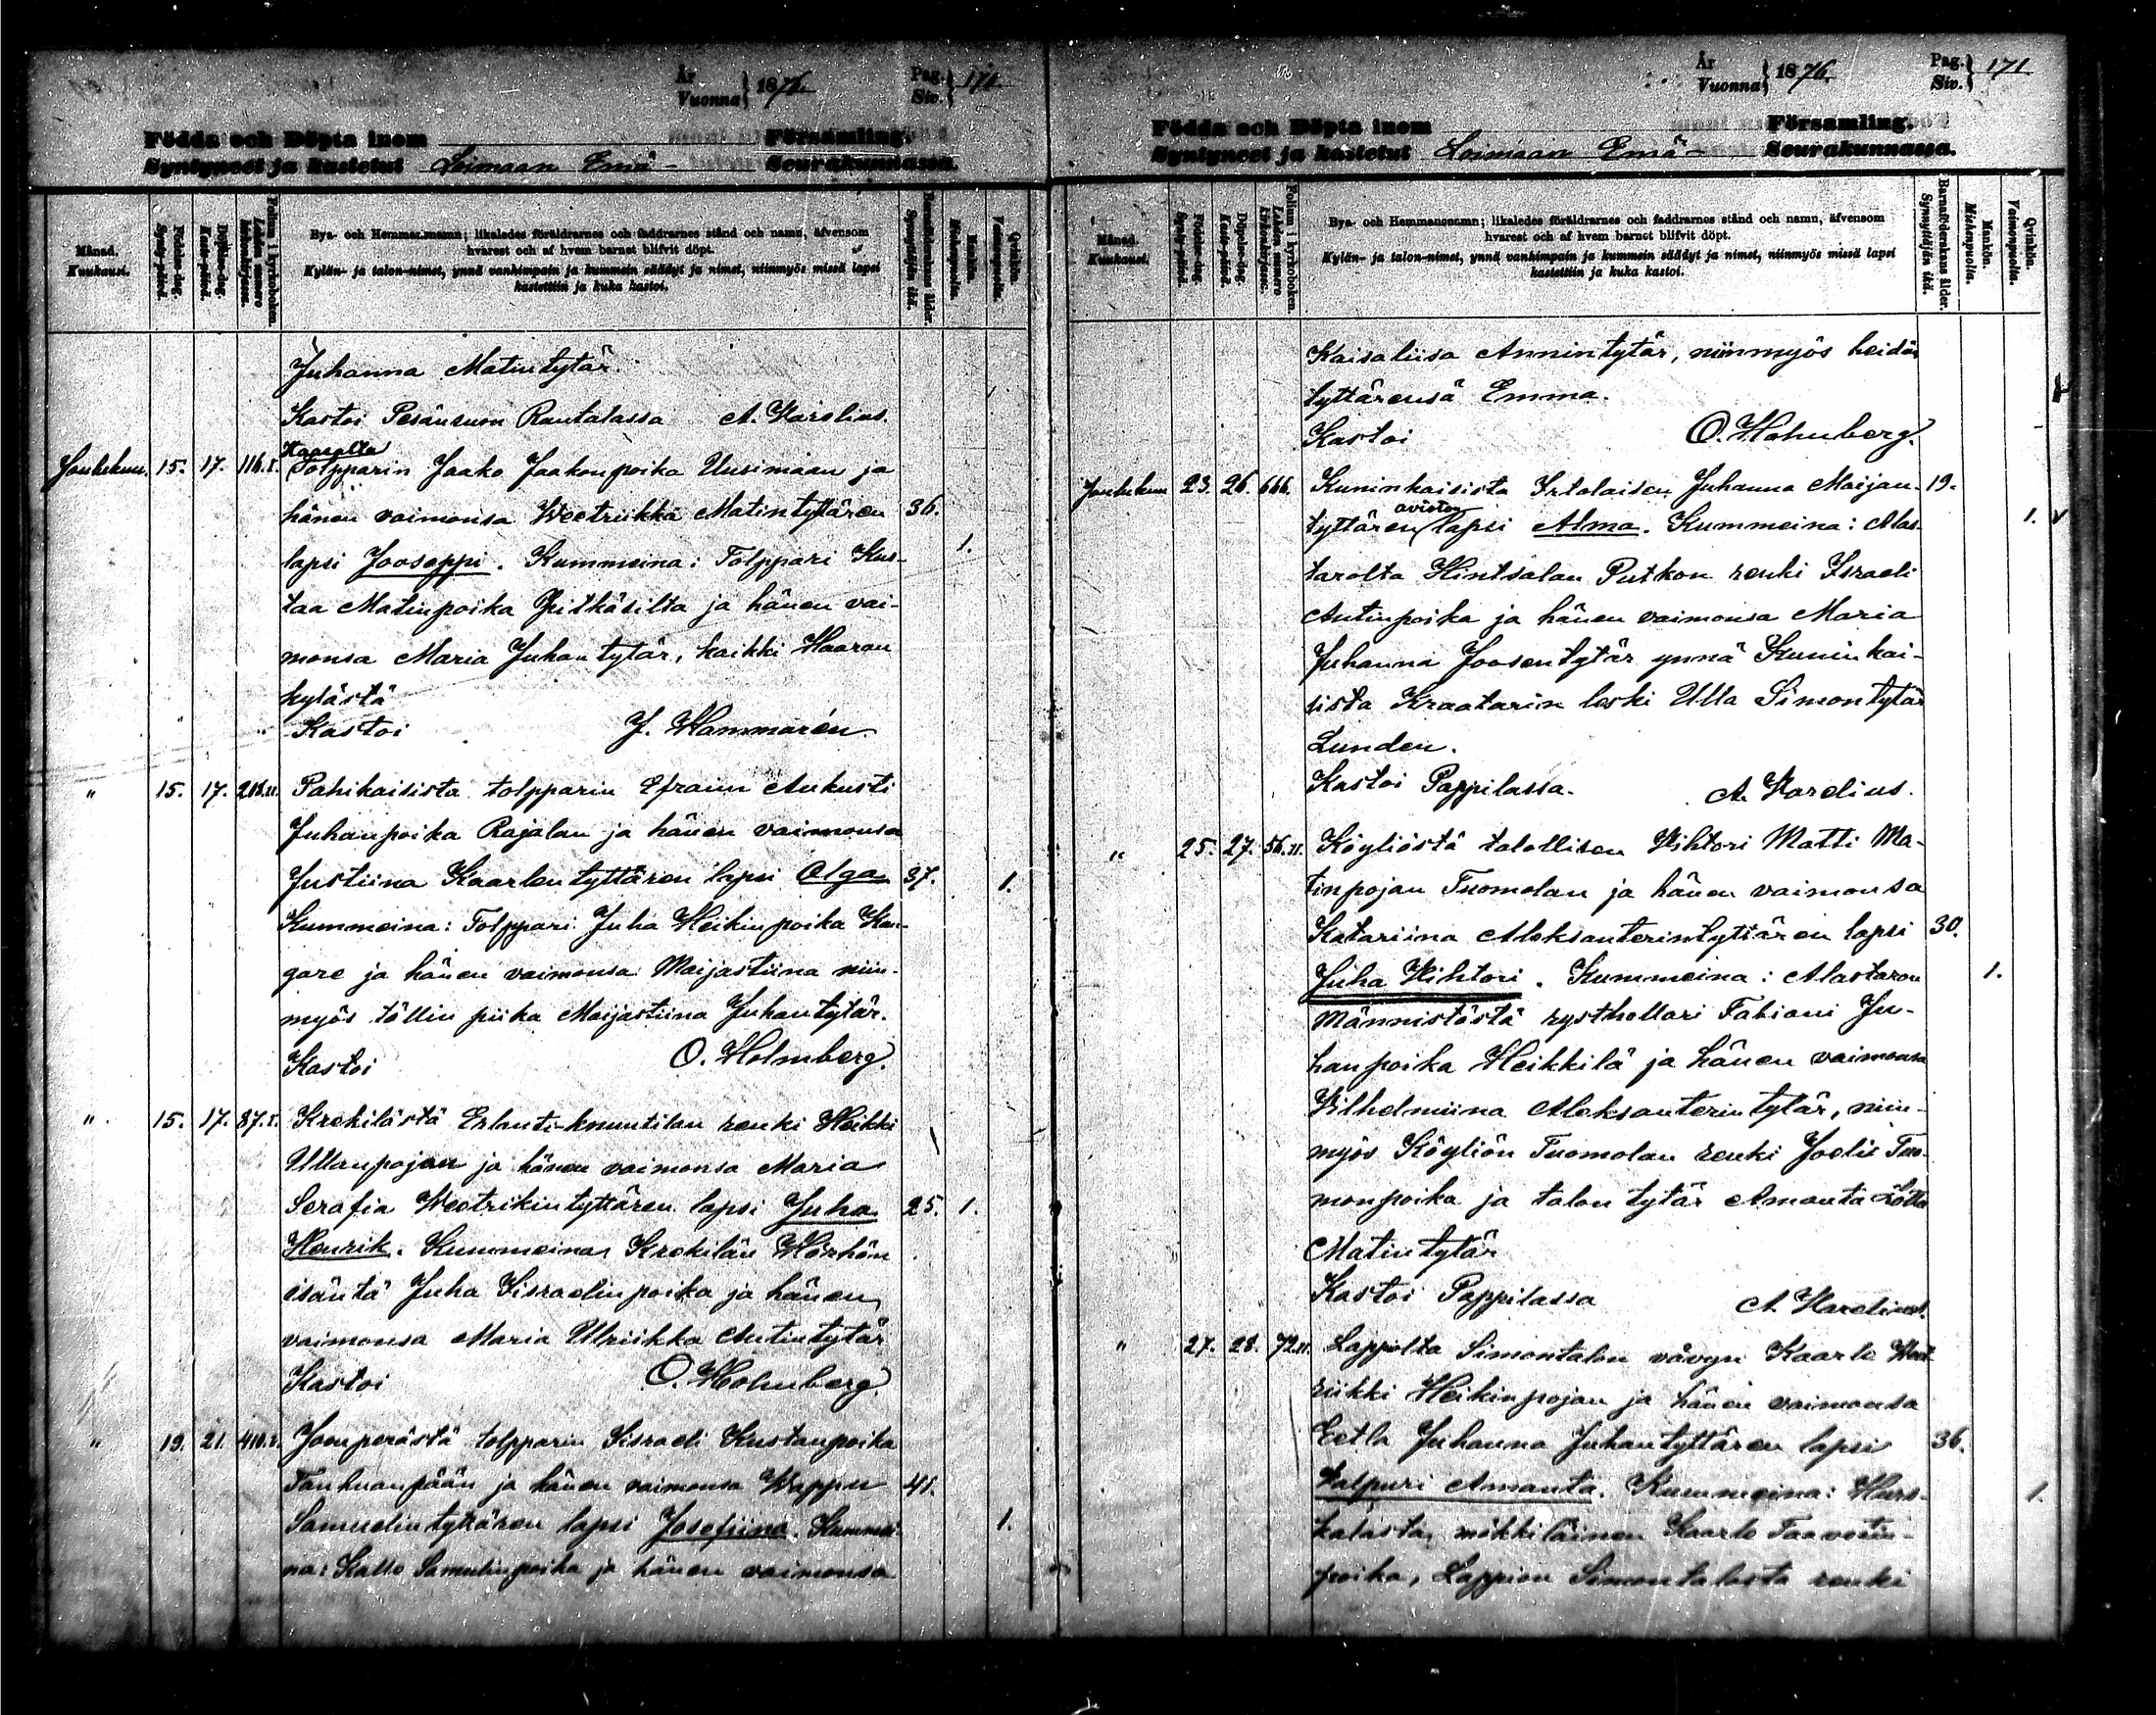 År
Vuonna } 1876.
Pag.
Siv. } 170.
Födda och Döpta inom Församling.
Syntyneet ja kastetut Loimaan Emä- Seurakunnassa.
Månad.
Kuukausi.
Födelse-dag.
Synty-päivä.
Döpelse-dag.
Kaste-päivä.
Folium i kyrkoboken.
Lehden numero kirkonkirjassa.
Bya- och Hemmansnamn; likaledes föräldrarnes och faddrarnes stånd och namn, äfvensom
hvarest och af hvem barnet blifvit döpt.
Kylän- ja talon-nimet, ynnä vanhimpain ja kummein säädyt ja nimet, niinmyös missä lapsi
kastettiin ja kuka kastoi.
Barnaföderskans ålder.
Synnyttäjän ikä.
Mankön.
Miehenpuolia.
Qvinkön.
Vaimonpuolia.
Juhanna Matintytär.
Kastoi Pesänsuon Rautalassa A. Karelius.
Haaralta
Jouluknu. 15. 17. 116.I. Tolpparin Jaako Jaakonpoika Uusimaan ja
hänen vaimonsa Weetriikka Matintyttären 36.
lapsi Joosappi. Kummeina: Tolppari Kus- 1.
taa Matinpoika Pitkäsilta ja hänen vai-
monsa Maria Juhantytär, kaikki Haaran
kylästä
Kastoi J. Hammarén
" 15. 17. 218.II. Pahikaisista tolpparin Efraim Aukusti
Juhanpoika Rajalan ja hänen vaimonsa
Justiina Kaarlentyttären lapsi Olga 37. 1.
Kummeina: Tolppari Juha Heikinpoika Kan-
gare ja hänen vaimonsa Maijastiina niin-
myös töllin piika Maijastiina Juhantytär.
Kastoi O. Holmberg.
" 15. 17. 87.I. Krekilästä Erlanti-knuutilan renki Heikki
Ullanpojan ja hänen vaimonsa Maria
Serafia Weetrikintyttären lapsi Juha 25. 1.
Henrik. Kummeina Krekilän Hörhön
isäntä Juha Iisraelinpoika ja hänen
vaimonsa Maria Ulriikka Antintytär
Kastoi O. Holmberg.
" 19. 21. 410. Joenperästä tolpparin Iisraeli Kustanpoika
Tanhuanpään ja hänen vaimonsa Wappu 41.
Samuelintyttären lapsi Josefiina. Kummei- 1.
na: Kalle Samulinpoika ja hänen vaimonsa
År
Vuonna } 1876.
Pag.
Siv. } 171
Födda och Döpta inom Församling.
Syntyneet ja kastetut Loimaan Emä- Seurakunnassa.
Månad.
Kuukausi.
Födelse-dag.
Synty-päivä.
Döpelse-dag.
Kaste-päivä.
Folium i kyrkoboken.
Lehden numero kirkonkirjassa.
Bya- och Hemmansnamn; likaledes föräldrarnes och faddrarnes stånd och namn, äfvensom
hvarest och af hvem barnet blifvit döpt.
Kylän- ja talon-nimet, ynnä vanhimpain ja kummein säädyt ja nimet, niinmyös missä lapsi
kastettiin ja kuka kastoi.
Barnaföderskans ålder.
Synnyttäjän ikä.
Mankön.
Miehenpuolia.
Qvinkön.
Vaimonpuolia.
Kaisaliisa Annintytär, niinmyös heidän
tyttärensä Emma.
Kastoi O. Holmberg.
Jouluknu 23. 26. 666. Kuninkaisista Irtolaisen Juhanna Maijan- 19.
avioton
tyttären lapsi Alma. Kummeina: Alas- 1.
tarolta Hintsalan Putkon renki Israeli
Antinpoika ja hänen vaimonsa Maria
Juhanna Joosentytär ynnä Kuninkai-
sista Kraatarin leski Ulla Simontytär
Lunden.
Kastoi Pappilassa. A. Karelius.
" 25. 27. 56.II. Köyliöstä talollisen Wihtori Matti Ma-
tinpojan Tuomolan ja hänen vaimonsa
Katariina Aleksanterintyttären lapsi 30.
Juha Wihtori. Kummeina: Alastaron 1.
Männistöstä rysthollari Fabiani Ju-
hanpoika Heikkilä ja hänen vaimonsa
Wilhelmiina Aleksanterintytär, niin-
myös Köyliön Tuomolan renki Joelis Tuo-
monpoika ja talon tytär Amanta Lotta
Matintytär
Kastoi Pappilassa A. Karelius.
" 27. 28. 72.II. Lappilta Simontalon vävyn Kaarle Weet-
riikki Heikinpojan ja hänen vaimonsa
Eetla Juhanna Juhantyttären lapsi 36.
Walpuri Amanta. Kummeina: Hurs- 1.
kalasta mökkiläinen Kaarle Taavetin-
poika, Lappion Simontalosta renki